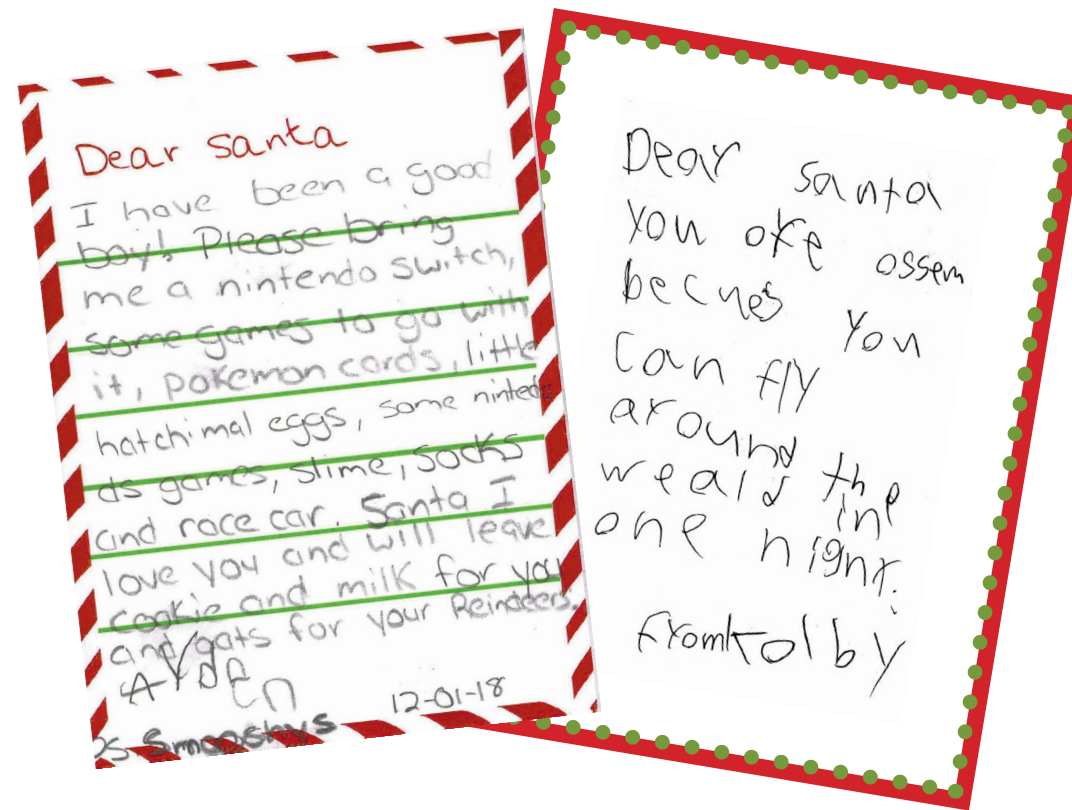 Dear santa
I have been a good
boy! Please bring
me a nintendo switch,
some games to go with
it, pokemon cards, little
hatchimal eggs, some nintedo
ds games, slime, socks
and race car. Santa I
love you and will leave
cookie and milk for you
and oats for your Reindeers.
AYde
en
12-01-18
ps. Smooshys
Dear santa
You are ossem
becues You
Can fly
around the
weald in
one night.
from kolby